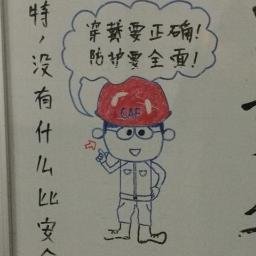 穿戴要正确!
防护要全面!
CAF
特,没有什么比安全